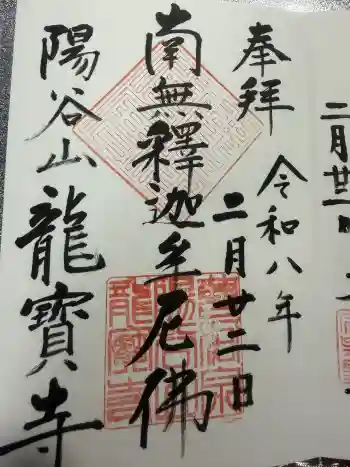 奉拝
令和八年
二月廿二日
南無釋迦牟尼佛
陽谷山龍寶寺
二月廿二日